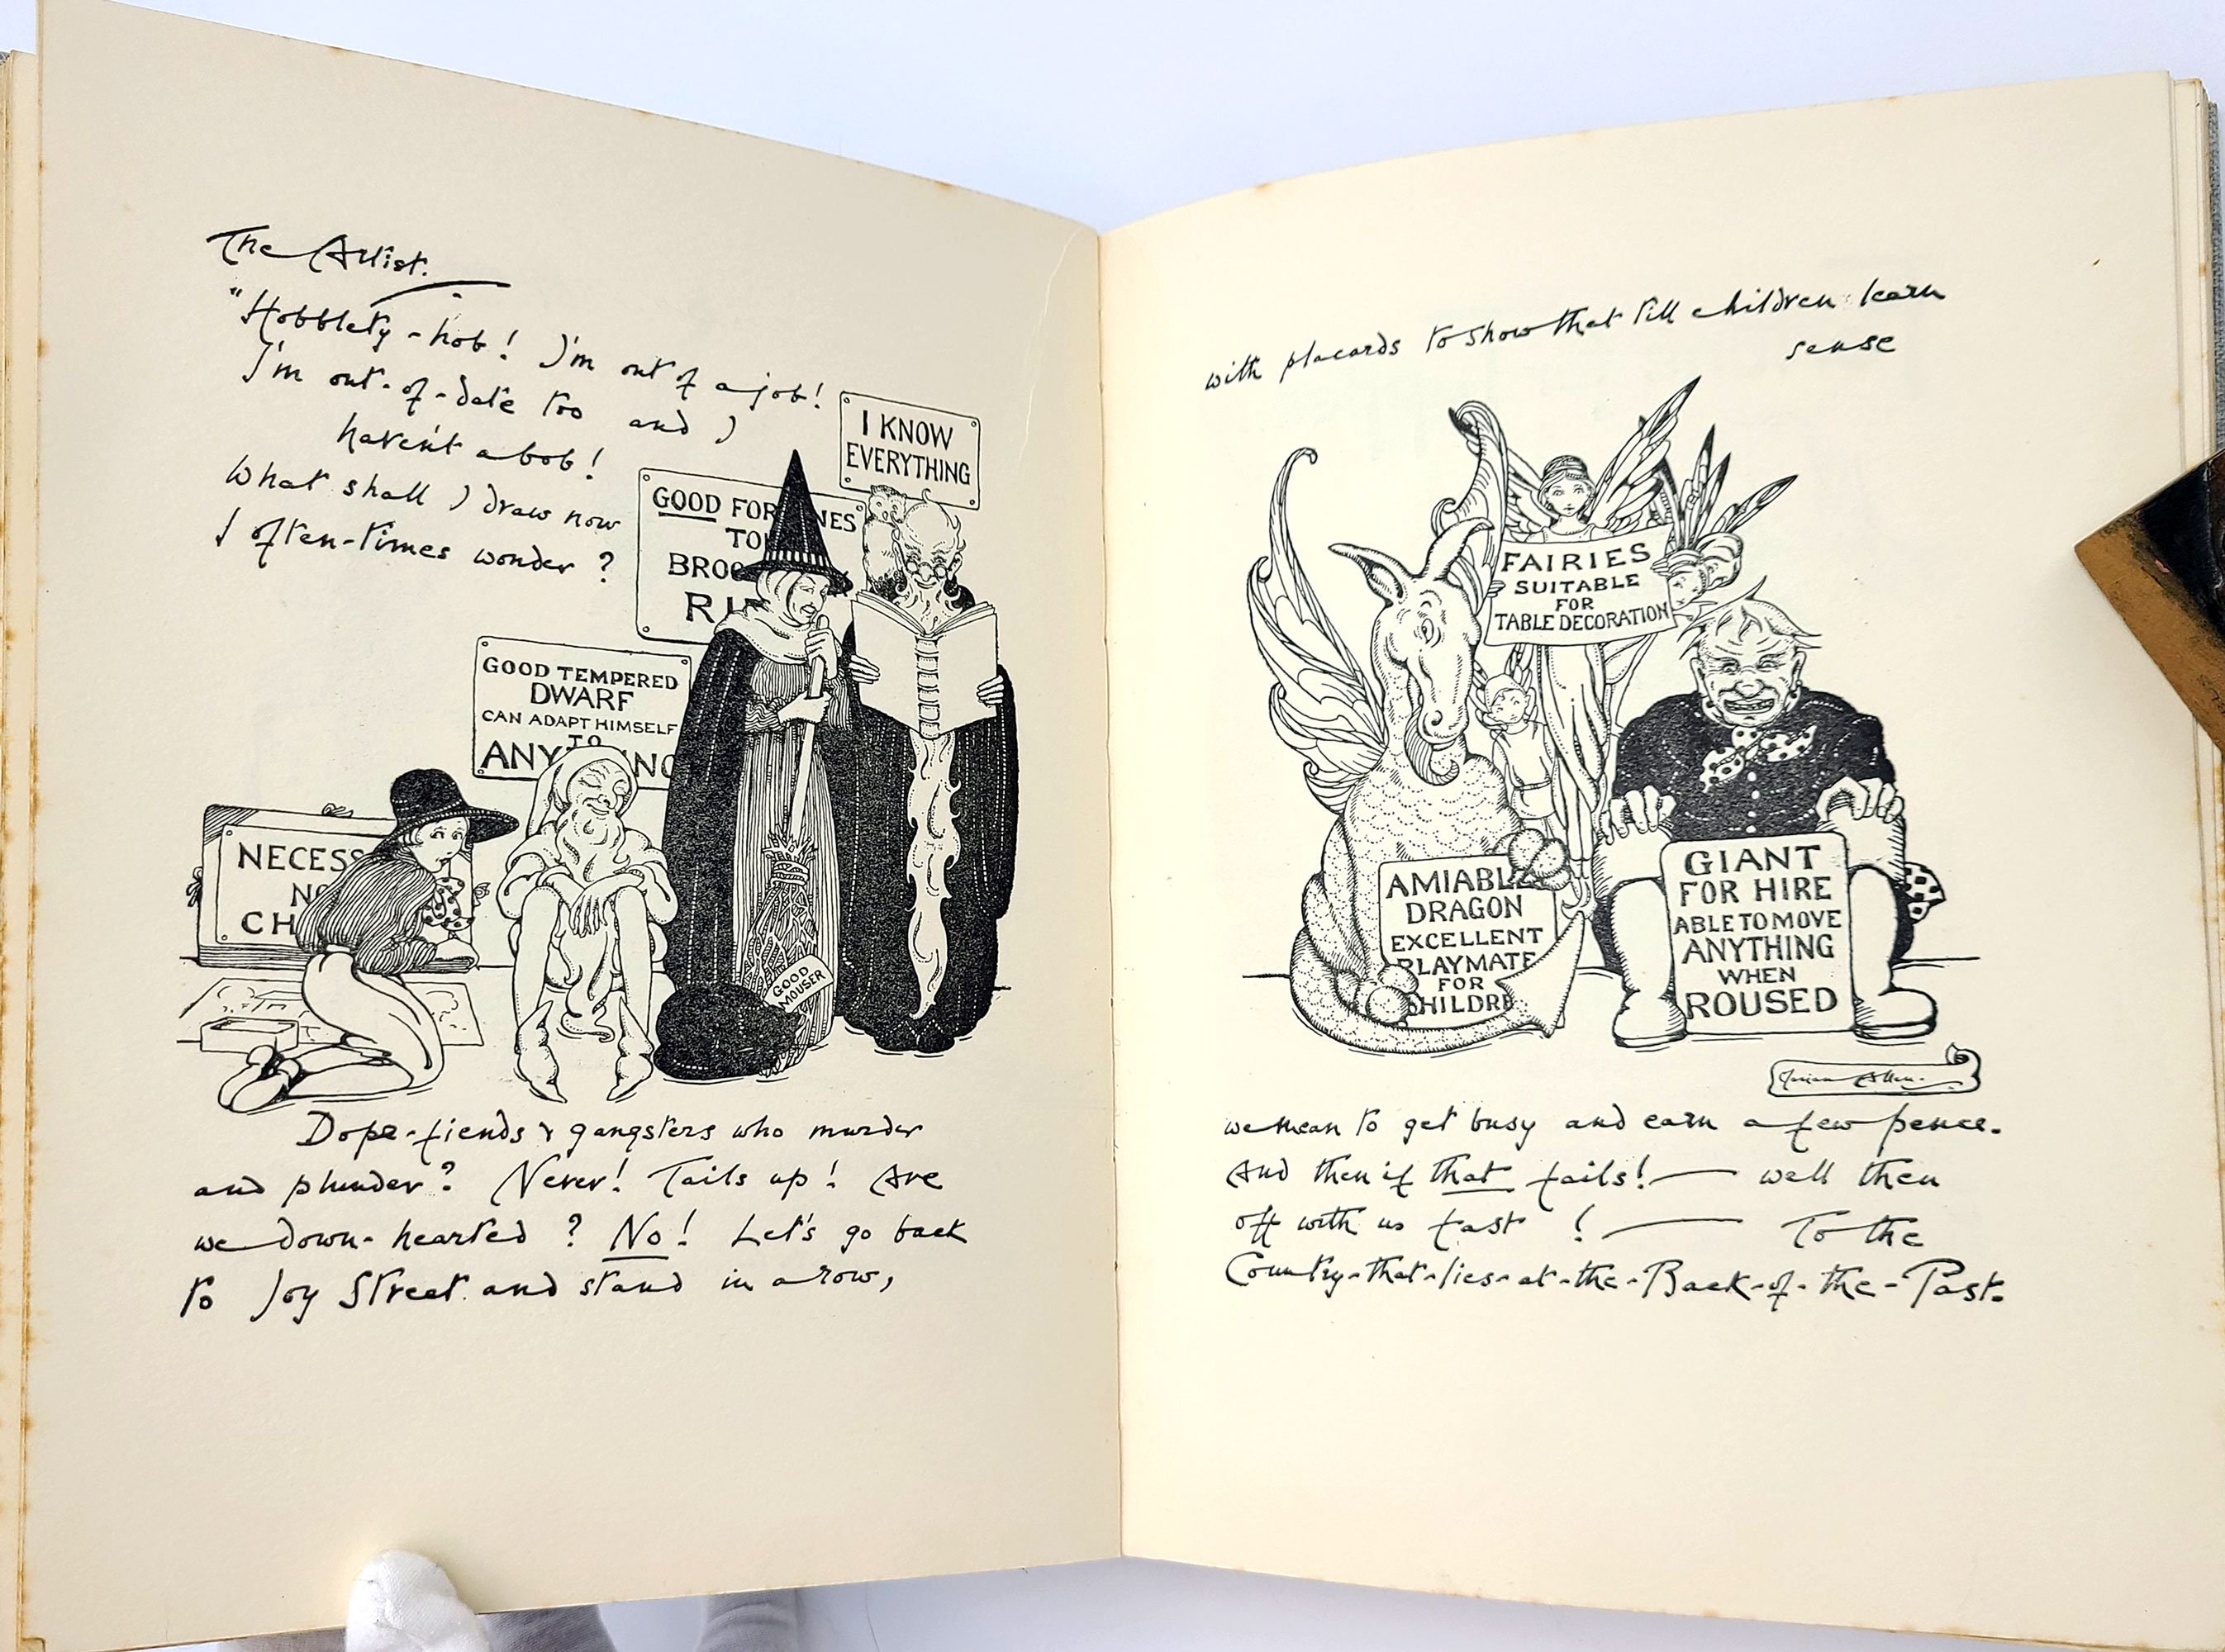 The Artist.
"Hobblety-hob! I'm out of a job!
I'm out-of-date too and I
haven't a bob!
What shall I draw now
I often-times wonder?
I KNOW
EVERYTHING
GOOD FOR NES
TO
BROO
R
GOOD TEMPERED
DWARF
CAN ADAPT HIMSELF
TO
ANY NG
NECESS
N
CH
GOOD
MOUSER
Dope-fiends & gangsters who murder
and plunder? Never! Tails up! Are
we down-hearted? No! Let's go back
to Joy Street and stand in a row,
with placards to show that till children learn
sense
FAIRIES
SUITABLE
FOR
TABLE DECORATION
AMIABLE
DRAGON
EXCELLENT
PLAYMATE
FOR
CHILDRE
GIANT
FOR HIRE
ABLE TO MOVE
ANYTHING
WHEN
ROUSED
we mean to get busy and earn a few pence.
And then if that fails!— well then
off with us fast!— To the
Country-that-lies-at-the-Back-of-the-Past.